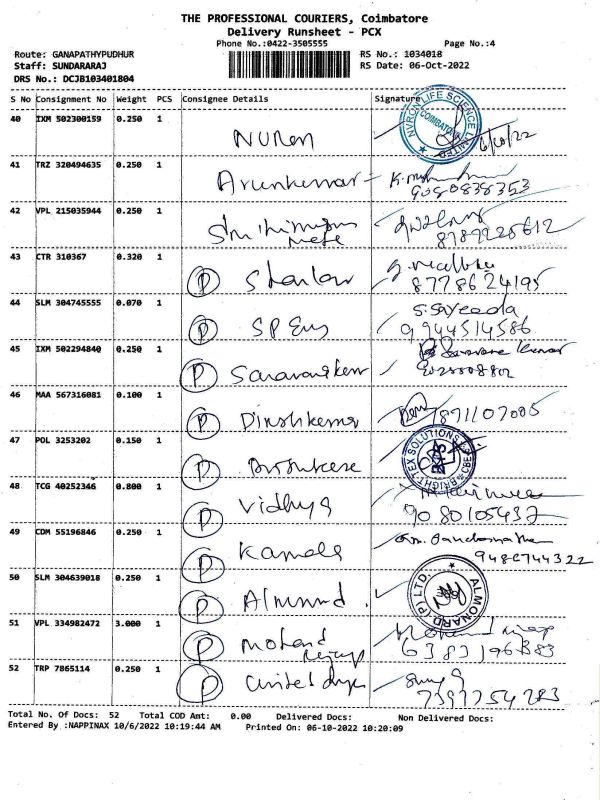 THE PROFESSIONAL COURIERS, Coimbatore
Delivery Runsheet - PCX
Phone No.:0422-3505555 Page No.:4
Route: GANAPATHYPUDHUR RS No.: 1034018
Staff: SUNDARARAJ RS Date: 06-Oct-2022
DRS No.: DCJB103401804
S No Consignment No Weight PCS Consignee Details Signature
40 IXM 502300159 0.250 1
NVRON LIFE SCIENCE LIMITED
COIMBATORE
6/10/22
41 TRZ 320494635 0.250 1
Arunkumar
9080838353
42 VPL 215035944 0.250 1
8989225612
43 CTR 310367 0.320 1
P
8778624195
44 SLM 304745555 0.070 1
S. Sayeeda
P SP Eng 9944514586
45 IXM 502294840 0.250 1
Saravana Kumar
P Saravanakumar
46 MAA 567316081 0.100 1
P Dinesh kumar
47 POL 3253202 0.150 1
BRIGHTEX SOLUTIONS CBE
P
48 TCG 40252346 0.800 1
P Vidhya 9080105437
49 CDM 55196846 0.250 1
P Kamala 9486744322
50 SLM 304639018 0.250 1
P Almond ALMONARD (P) LTD.
51 VPL 334982472 3.000 1
P Mohamed
6383196883
52 TRP 7865114 0.250 1
P United
7397754283
Total No. Of Docs: 52 Total COD Amt: 0.00 Delivered Docs: Non Delivered Docs:
Entered By :NAPPINAX 10/6/2022 10:19:44 AM Printed On: 06-10-2022 10:20:09